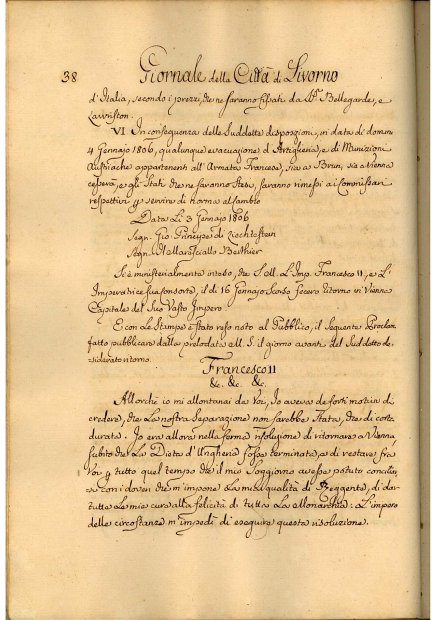 38 Giornale della Città di Livorno
d'Italia, secondo i prezzi, che ne saranno fissati da Bellegarde, e
Lauriston.
VI In conseguenza delle Suddette disposizioni, in data di domani
4 Gennajo 1806, qualunque evacuazione d'Artiglieria, e di Munizioni
Austriache appartenenti all'Armata Francese, sia a Brun, sia a Vienna
cesserà, e gli Stati che ne saranno Stesi, saranno rimessi ai Commissari
respettivi servire di Norma al Cambio
Data Li 3 Gennajo 1806
Segn. Gio: Principe di Liechtestein
Segn. Il Maresciallo Berthier
Si è ministerialmente inteso, che S. M. L'Imp. Francesco II, e L'
Imperatrice sua consorte, il dì 16 Gennajo Scorso fecero ritorno in Vienna
Capitale del Suo Vasto Impero.
E con Le Stampe è stato reso noto al Pubblico, il Seguente Proclama
fatto pubblicare dalla prelodata M. S. il giorno avanti del Suddetto de-
siderato ritorno.
Francesco II
&c. &c. &c.
Allorchè io mi allontanai da Voi, Io aveva de forti motivi di
credere, che La nostra Separazione non sarebbe Stata, che di corta
durata. Io era allora nella ferma risoluzione di ritornare a Vienna
subito che La Dieta d'Ungheria fosse terminata, e di restare fra
Voi tutto quel tempo che il mio Soggiorno avesse potuto concilia
si con i doveri che m'impone La mia qualità di Reggente, di dar
tutte Le mie cure alla felicità di tutta La Monarchia: L'impero
delle circostanze m'impedì di eseguire questa risoluzione.